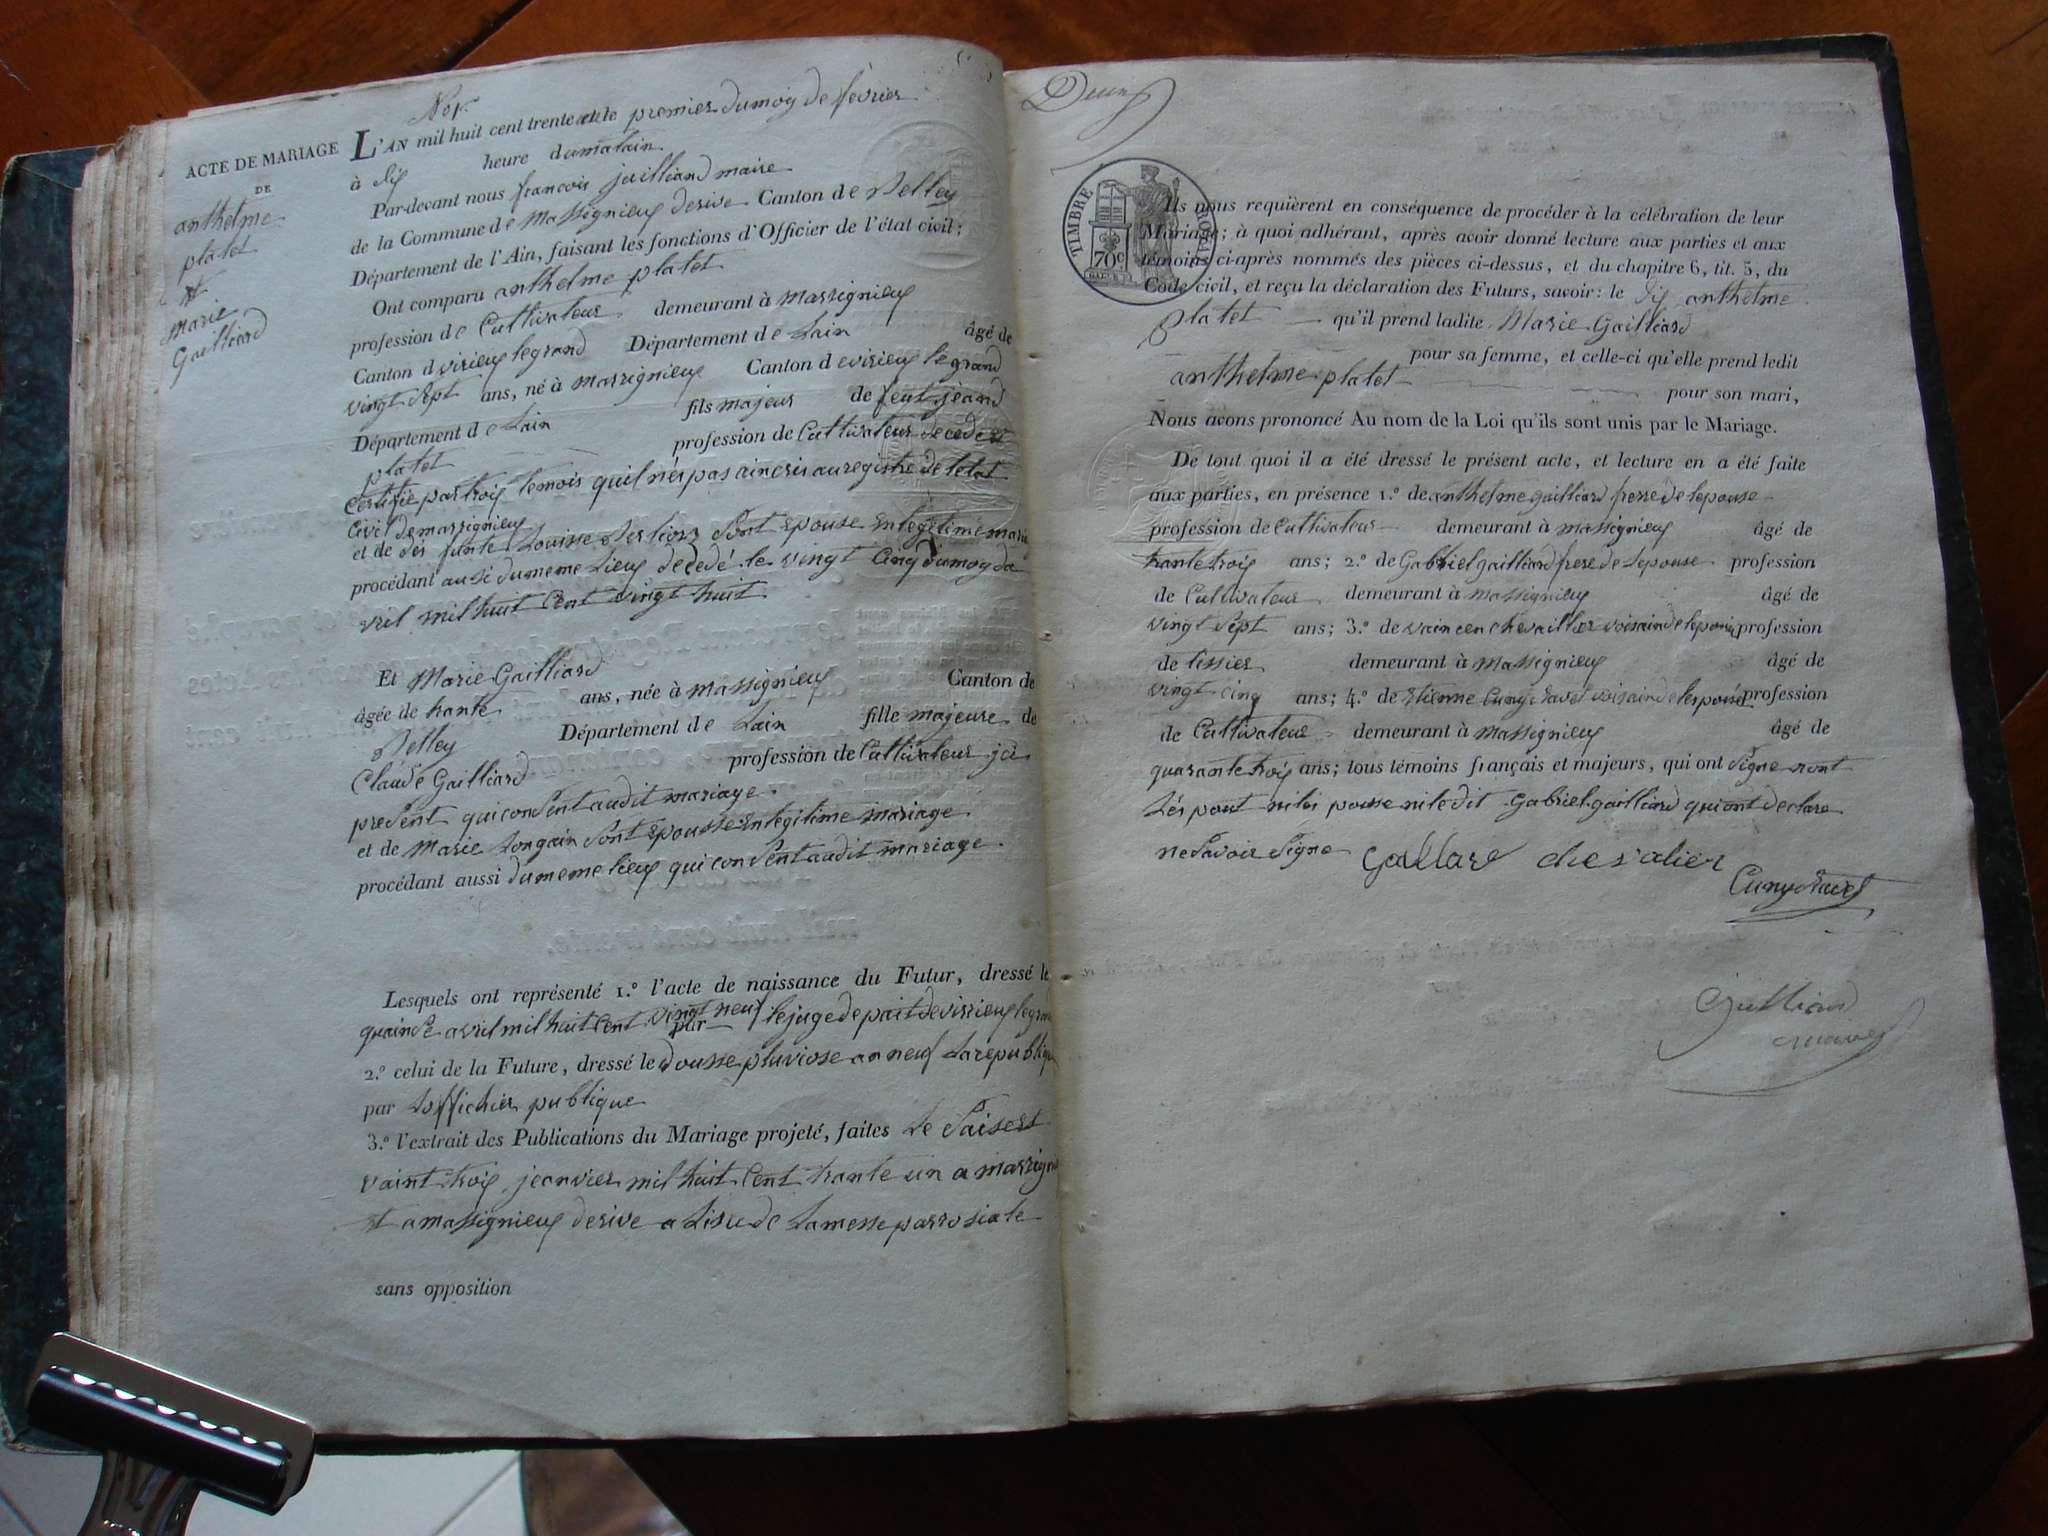 N° 1.
ACTE DE MARIAGE
DE
anthelme
platet
et
marie
Gailliard
L'AN mil huit cent trente et le premier du moiy de fevrier
à diy heure du matain
Par-devant nous francois jailliand maire
de la Commune de Massignieuy de rive Canton de Belley
Département de l'Ain, faisant les fonctions d'Officier de l'état civil;
Ont comparu anthelme platet
profession de Cultivateur demeurant à Marrignieuy
Canton d virieuy le grand Département de Lain âgé de
vingt Sept ans, né à Marrignieuy Canton d evirieuy le grand
Département de Lain fils majeur de feut jeand
platet profession de Cultivateur decede et
Certifie par troiy temois quil nés pas aincris au registre de letat
Civil de marrignieuy
et de dér funte Louisse Sont epouse en legetime maria
procédant ausi du meme Lieuy decedé le vingt Cinq du moy da
vril mil huit Cent vingt huit
Et Marie Gailliard
âgée de trante ans, née à Massignieuy Canton de
Belley Département de Lain fille majeure de
Claude Gailliard profession de Cultivateur jci
preSent qui conSent audit mariage.
et de Marie Longain Sont Epousse en legitime mariage
procédant aussi du meme lieuy qui conSent audit mariage.
Lesquels ont représenté 1.° l'acte de naissance du Futur, dressé le
quainse avril mil huit Cent vingt neuf par le juge de pait de virieuy le gran
2.° celui de la Future, dressé le dousse pluviose an neuf La republique
par Loffichier publique
3.° l'extrait des Publications du Mariage projeté, faites Le
vaint troiy jeanvier mil huit Cent trante un a marrign
et a massignieuy de rive a Lisu de La messe parrosiale
sans opposition
Deuy
TIMBRE ROYAL
70c
Ils nous requièrent en conséquence de procéder à la célébration de leur
Mariage; à quoi adhérant, après avoir donné lecture aux parties et aux
témoins ci-après nommés des pièces ci-dessus, et du chapitre 6, tit. 5, du
Code civil, et reçu la déclaration des Futurs, savoir: le diy anthelme
platet qu'il prend ladite Marie Gailliard
pour sa femme, et celle-ci qu'elle prend ledit
anthelme platet pour son mari,
Nous avons prononcé Au nom de la Loi qu'ils sont unis par le Mariage.
De tout quoi il a été dressé le présent acte, et lecture en a été faite
aux parties, en présence 1.° de anthelme gailliard frere de lepouse
profession de Cultivateur demeurant à massignieuy âgé de
trante troiy ans; 2.° de Gabriel gailliard frere de Lepouse profession
de Cultivateur demeurant à massignieuy âgé de
vingt Sept ans; 3.° de vaincen chevaillier voisain de lepouse profession
de tessier demeurant à Massignieuy âgé de
vingt cinq ans; 4.° de Etienne Cuny ravet voisain de lespouse profession
de Cultivateur demeurant à Massignieuy âgé de
quarante troiy ans; tous témoins français et majeurs, qui ont Signe nont
Lés pout ni lé pousse ni le dit Gabriel gailliard qui ont declare
ne Savoir Signe Gallard chevalier
Cuny Ravet
Juilliand
maire